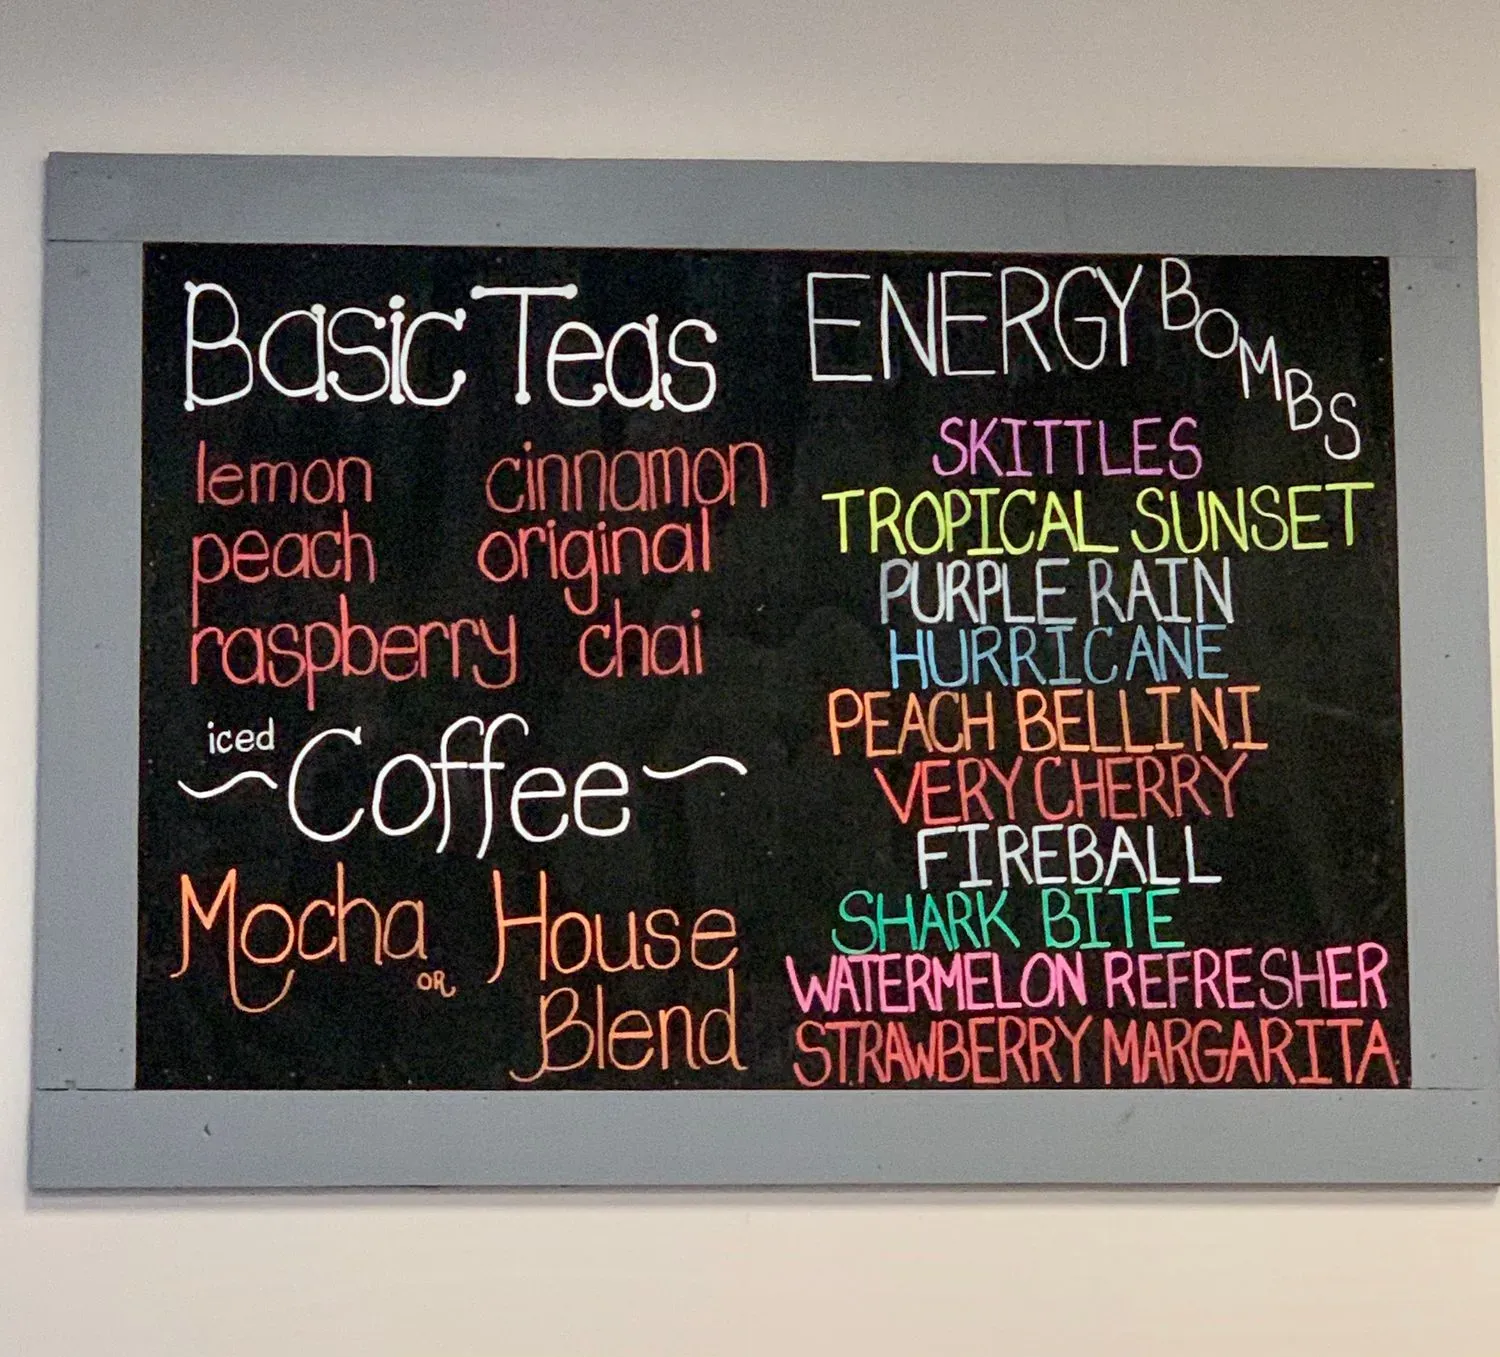 Basic Teas
lemon cinnamon
peach original
raspberry chai
iced
~Coffee~
Mocha OR House
Blend
ENERGY BOMBS
SKITTLES
TROPICAL SUNSET
PURPLE RAIN
HURRICANE
PEACH BELLINI
VERY CHERRY
FIREBALL
SHARK BITE
WATERMELON REFRESHER
STRAWBERRY MARGARITA